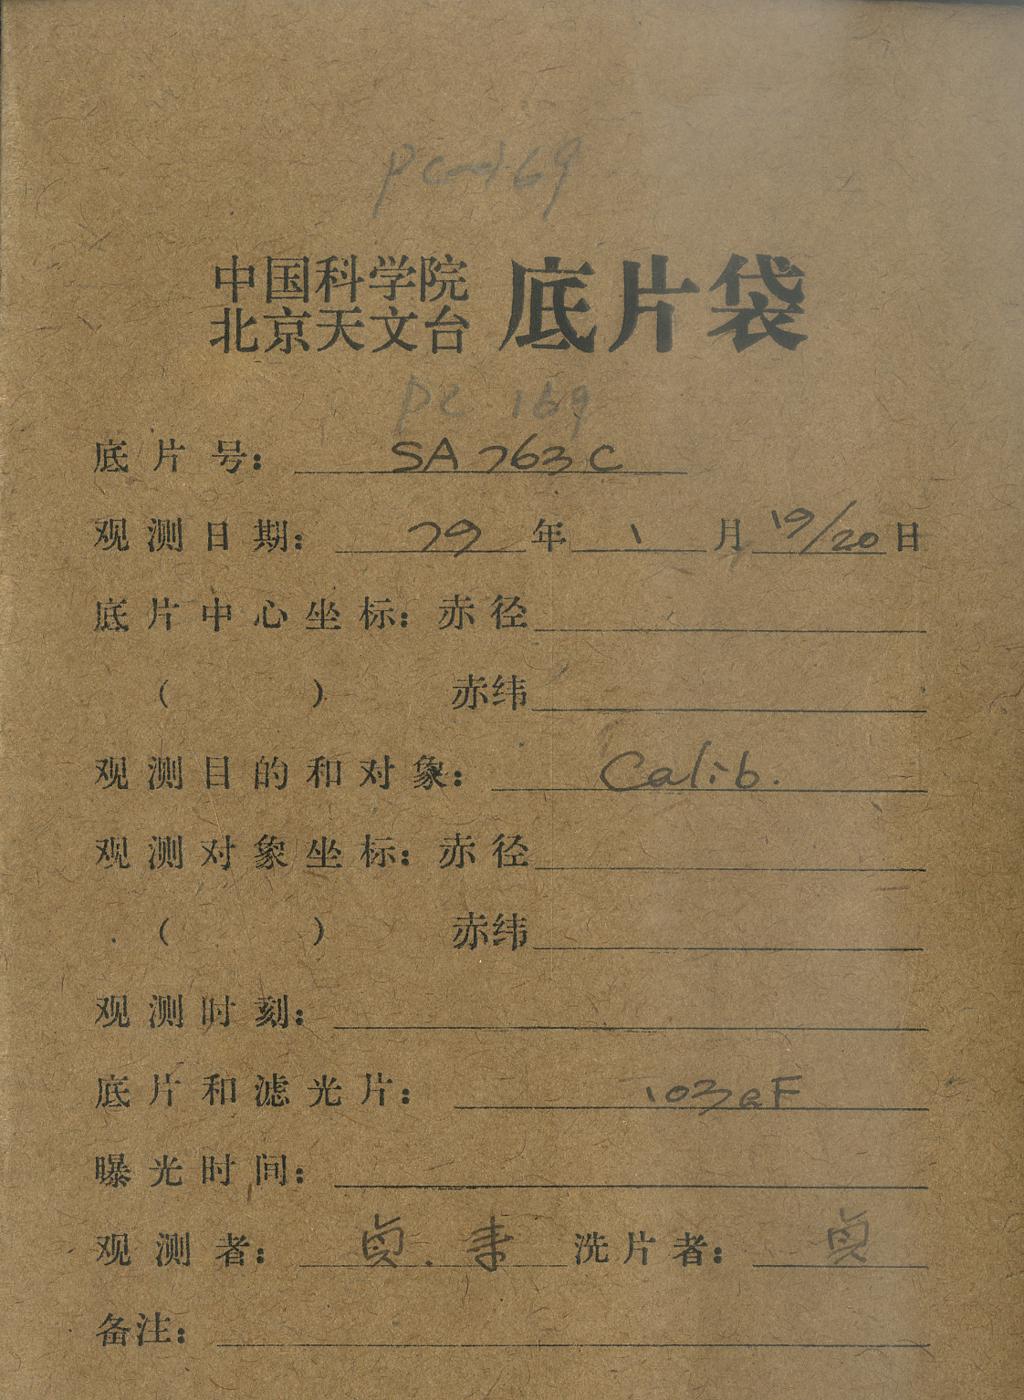 pc-169
中国科学院
北京天文台 底片袋
pc 169
底片号： SA 763 C
观测日期： 79 年 1 月 19/20 日
底片中心坐标：赤径
（ ） 赤纬
观测目的和对象： Calib.
观测对象坐标：赤径
（ ） 赤纬
观测时刻：
底片和滤光片： 103aF
曝光时间：
观测者： 贞. 洗片者： 贞
备注：